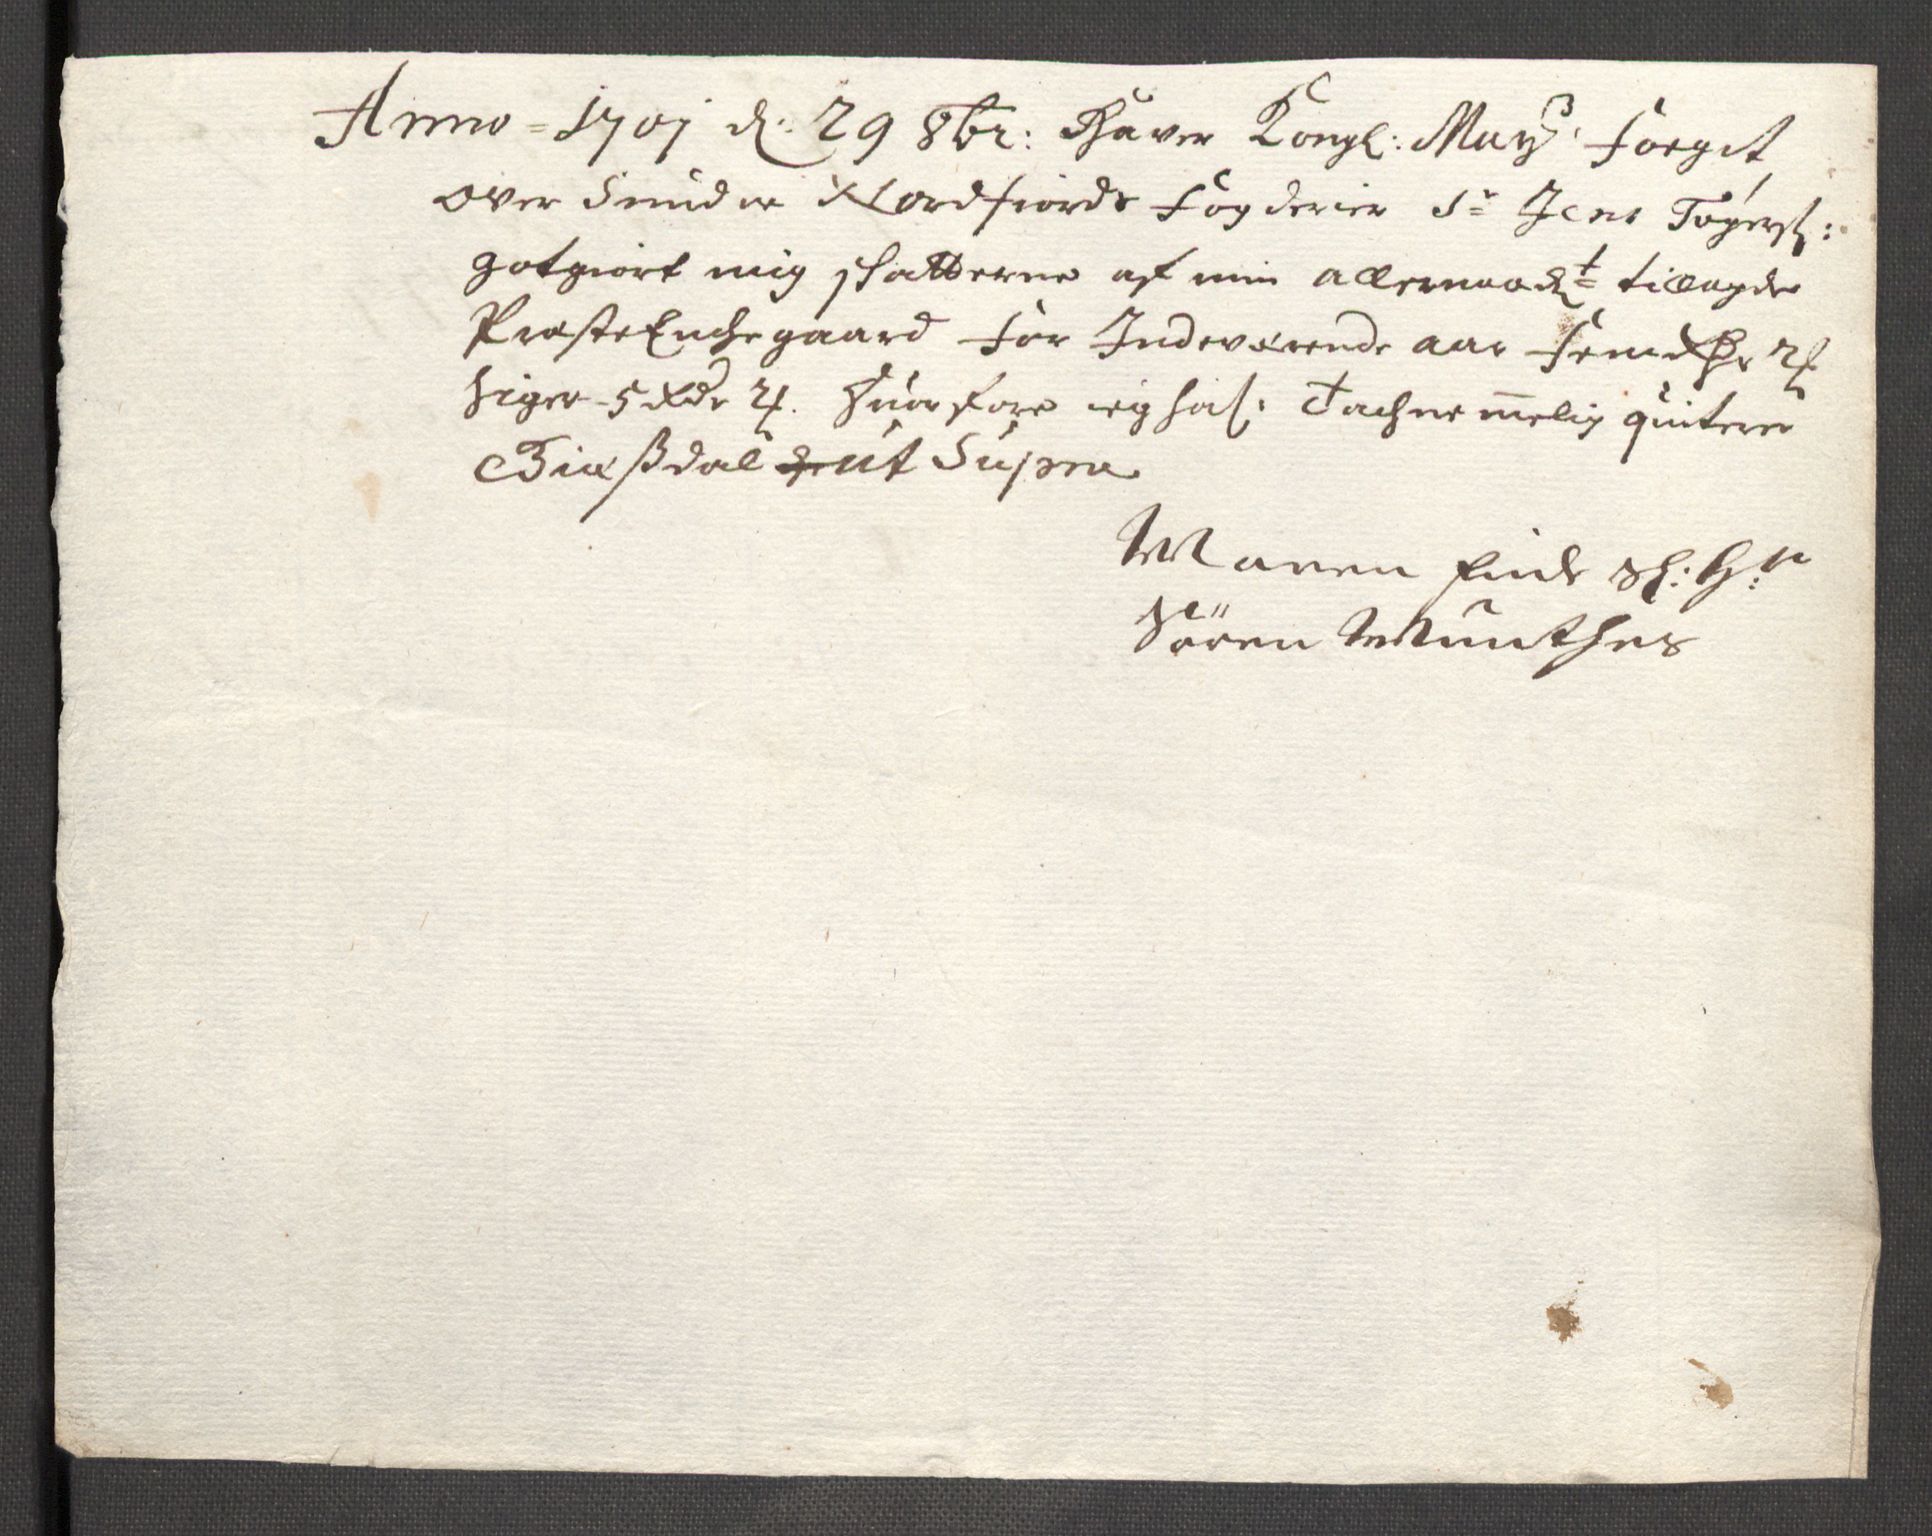 Anno = 1701 d: 29 8br: Haver Kongl: May: foegit
over Sund og Nordfiords fogderier Sr Jens Tøgers:
gotgiort mig skatterne af min allernaadt tillagde
Præste Enche gaard for Indeværende aar fem
siger 5 Rdr hvorfore ieg hal: Tachnemmelig quiterer
Giæstdal ut Supra
Maren Finds Sl: Hr:
Sören Munthes